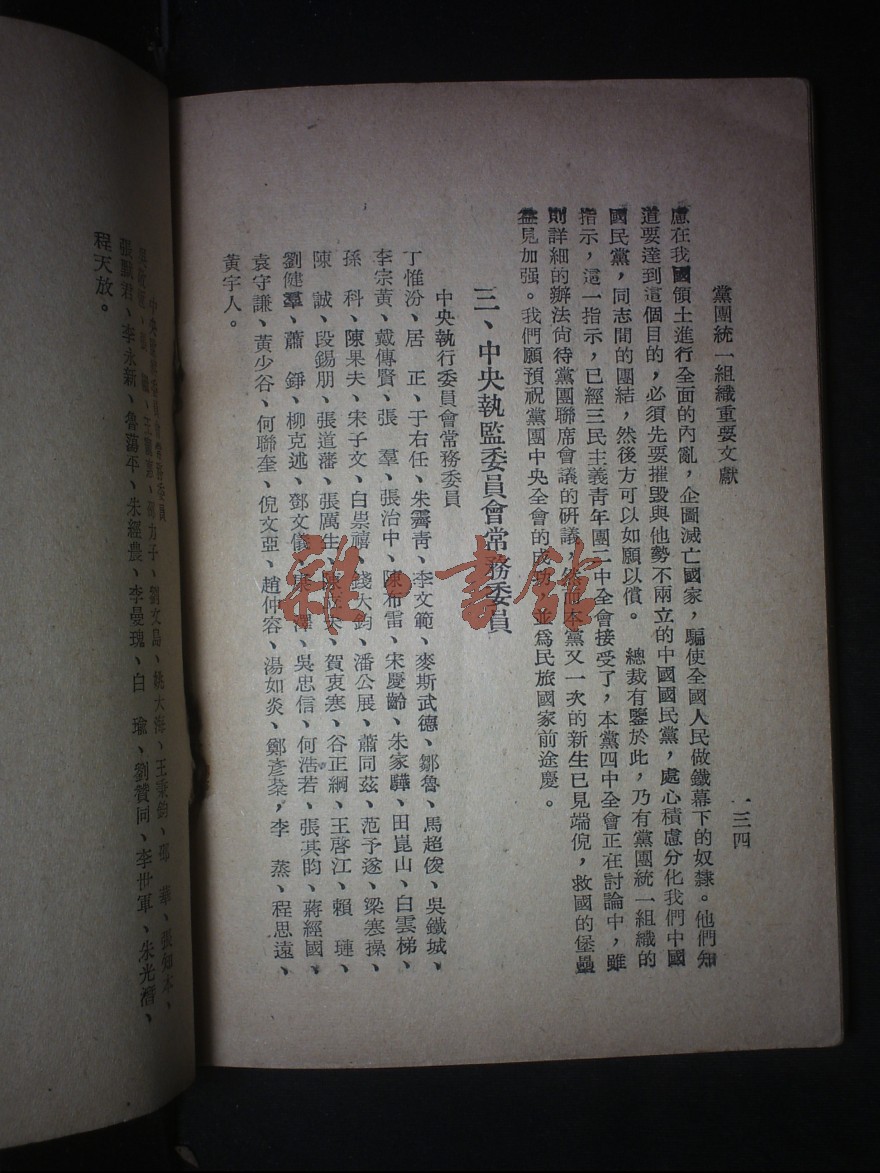 黨團統一組織重要文獻
一三四
慮在我國領土進行全面的內亂，企圖滅亡國家，驅使全國人民做鐵幕下的奴隸。他們知
道要達到這個目的，必須先要摧毀與他勢不兩立的中國國民黨，處心積慮分化我們中國
國民黨，同志間的團結，然後方可以如願以償。　總裁有鑒於此，乃有黨團統一組織的
指示，這一指示，已經三民主義靑年團二中全會接受了，本黨四中全會正在討論中，雖
則詳細的辦法尙待黨團聯席會議的硏議，然而本黨又一次的新生已見端倪，救國的堡壘
益見加强。我們願預祝黨團中央全會的成功，並爲民旅國家前途慶。
三、中央執監委員會常務委員
中央執行委員會常務委員
丁惟汾、居　正、于右任、朱霽靑、李文範、麥斯武德、鄒魯、馬超俊、吳鐵城、
李宗黃、戴傳賢、張　羣、張治中、陳布雷、宋慶齡、朱家驊、田崑山、白雲梯、
孫　科、陳果夫、宋子文、白崇禧、錢大鈞、潘公展、蕭同茲、范予遂、梁寒操、
陳　誠、段錫朋、張道藩、張厲生、陳立夫、賀衷寒、谷正綱、王啓江、賴　璉、
劉健羣、蕭　錚、柳克述、鄧文儀、康　澤、吳忠信、何浩若、張其昀、蔣經國、
袁守謙、黃少谷、何聯奎、倪文亞、趙仲容、湯如炎、鄭彥棻，李　蒸、程思遠、
黃宇人。
中央監察委員會常務委員
王寵惠、邵力子、劉文島、姚大海、王秉鈞、邵　華、張知本、
張默君、李永新、魯蕩平、朱經農、李曼瑰、白　瑜、劉贊同、李世軍、朱光潛、
程天放。
雜書館